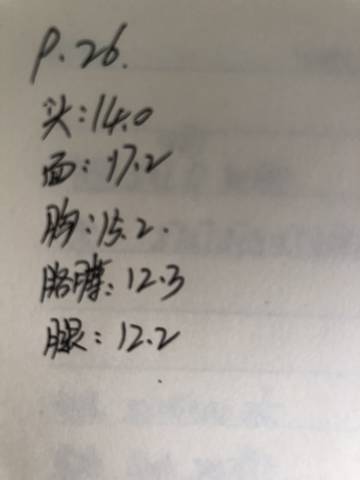 P.26.
头:14.0
面:17.2
胸:15.2.
胳膊:12.3
腿:12.2